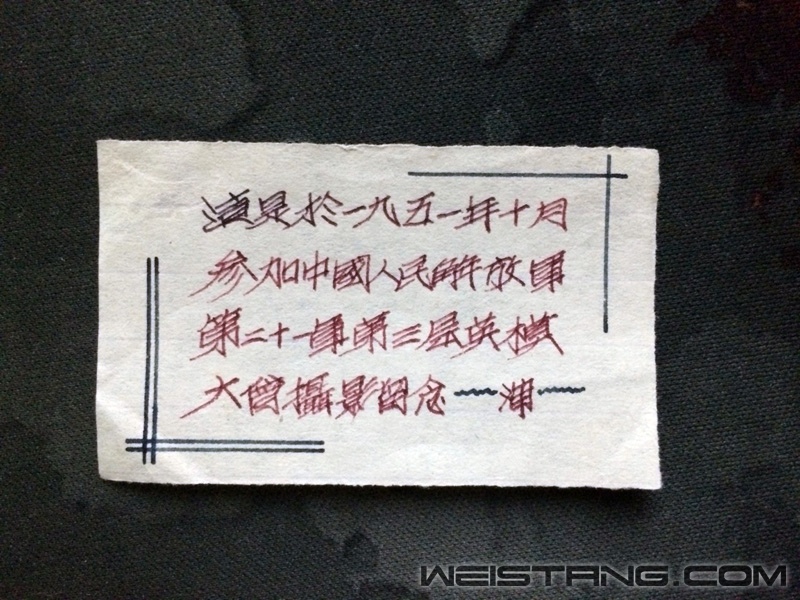 這是於一九五一年十月
參加中國人民解放軍
第二十一軍第三屆英模
大會攝影留念
WEISTANG.COM